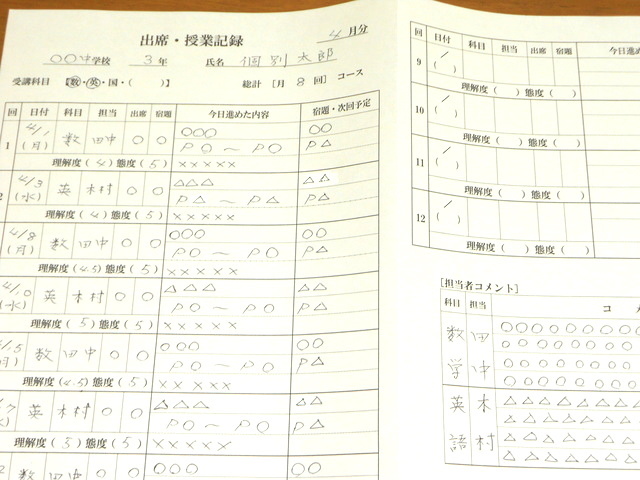 出席・授業記録
4月分
○○中学校 3年 氏名 個別太郎
受講科目 【数・英・国・( )】 総計 [月 8 回] コース
回 日付 科目 担当 出席 宿題 今日進めた内容 宿題・次回予定
1 4/1 (月) 数 田中 ○ ○ ○○○ ○○
P○～P○ P△
理解度(4) 態度(5) ×××××
2 4/3 (水) 英 木村 ○ ○ △△△ △△
P△～P△ P△
理解度(4) 態度(5) ×××××
4/8 (月) 数 田中 ○ ○ ○○○ ○○
P○～P○ P△
理解度(4.5) 態度(5) ×××××
英 木村 ○ ○ △△△ △△
P○～P○ P△
理解度(5) 態度(5) ×××××
数 田中 ○ ○ ○○○ ○○
P○～P○ P△
理解度(4.5) 態度(5) ×××××
英 木村 ○ ○ △△△ △△
P○～P○ P△
理解度(5) 態度(5) ×××××
数 田中 ○ ○ ○○○ ○○
回 日付 科目 担当 出席 宿題
9 / ( )
理解度( ) 態度( )
10 / ( )
理解度( ) 態度( )
11 / ( )
理解度( ) 態度( )
12 / ( )
理解度( ) 態度( )
[担当者コメント]
科目 担当 コ
数学 田中 ○○○○○○○○
○○○○○○○○
○○○○○○○○
○○○○○○○○
英語 木村 △△△△△△△
△△△△△△△
△△△△△△△
△△△△△△△